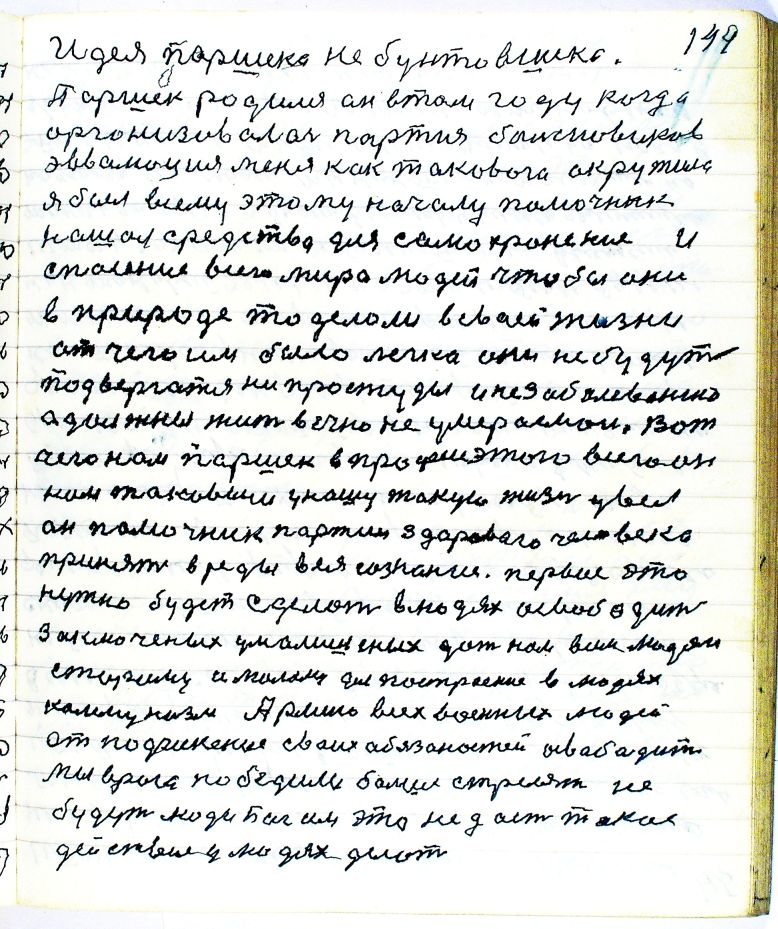 149
Идея паршека не бунтовщика.
Паршек родился он в том году когда
организовалас партия болшевиков
эвволюция меня как таковога акружила
я был всему этому началу помочник
нашол средства для само хронение И
спасение всего мира людей чтобы они
в природе то делоли в своей жизни
от чего им было легка они небудут
подвергатся ни простуды и не заболеванию
а должны жит вечно не умераемои. Вот
чего нам паршек
нам таковыи у нашу такую жизн увел
он помочник партии здарового человека
принят в ряды вся сознание. первое это
нужно будет сделат в людях асвободит
заключеных умалишеных дат нам всим людям
старому и молому для построение в людях
коммунизм Армию всех военных людей
от подчинение своих обязаностей асвабадит
мы врага победили болше стрелят не
будут люди Бог им это не даст такое
действие у людях делат